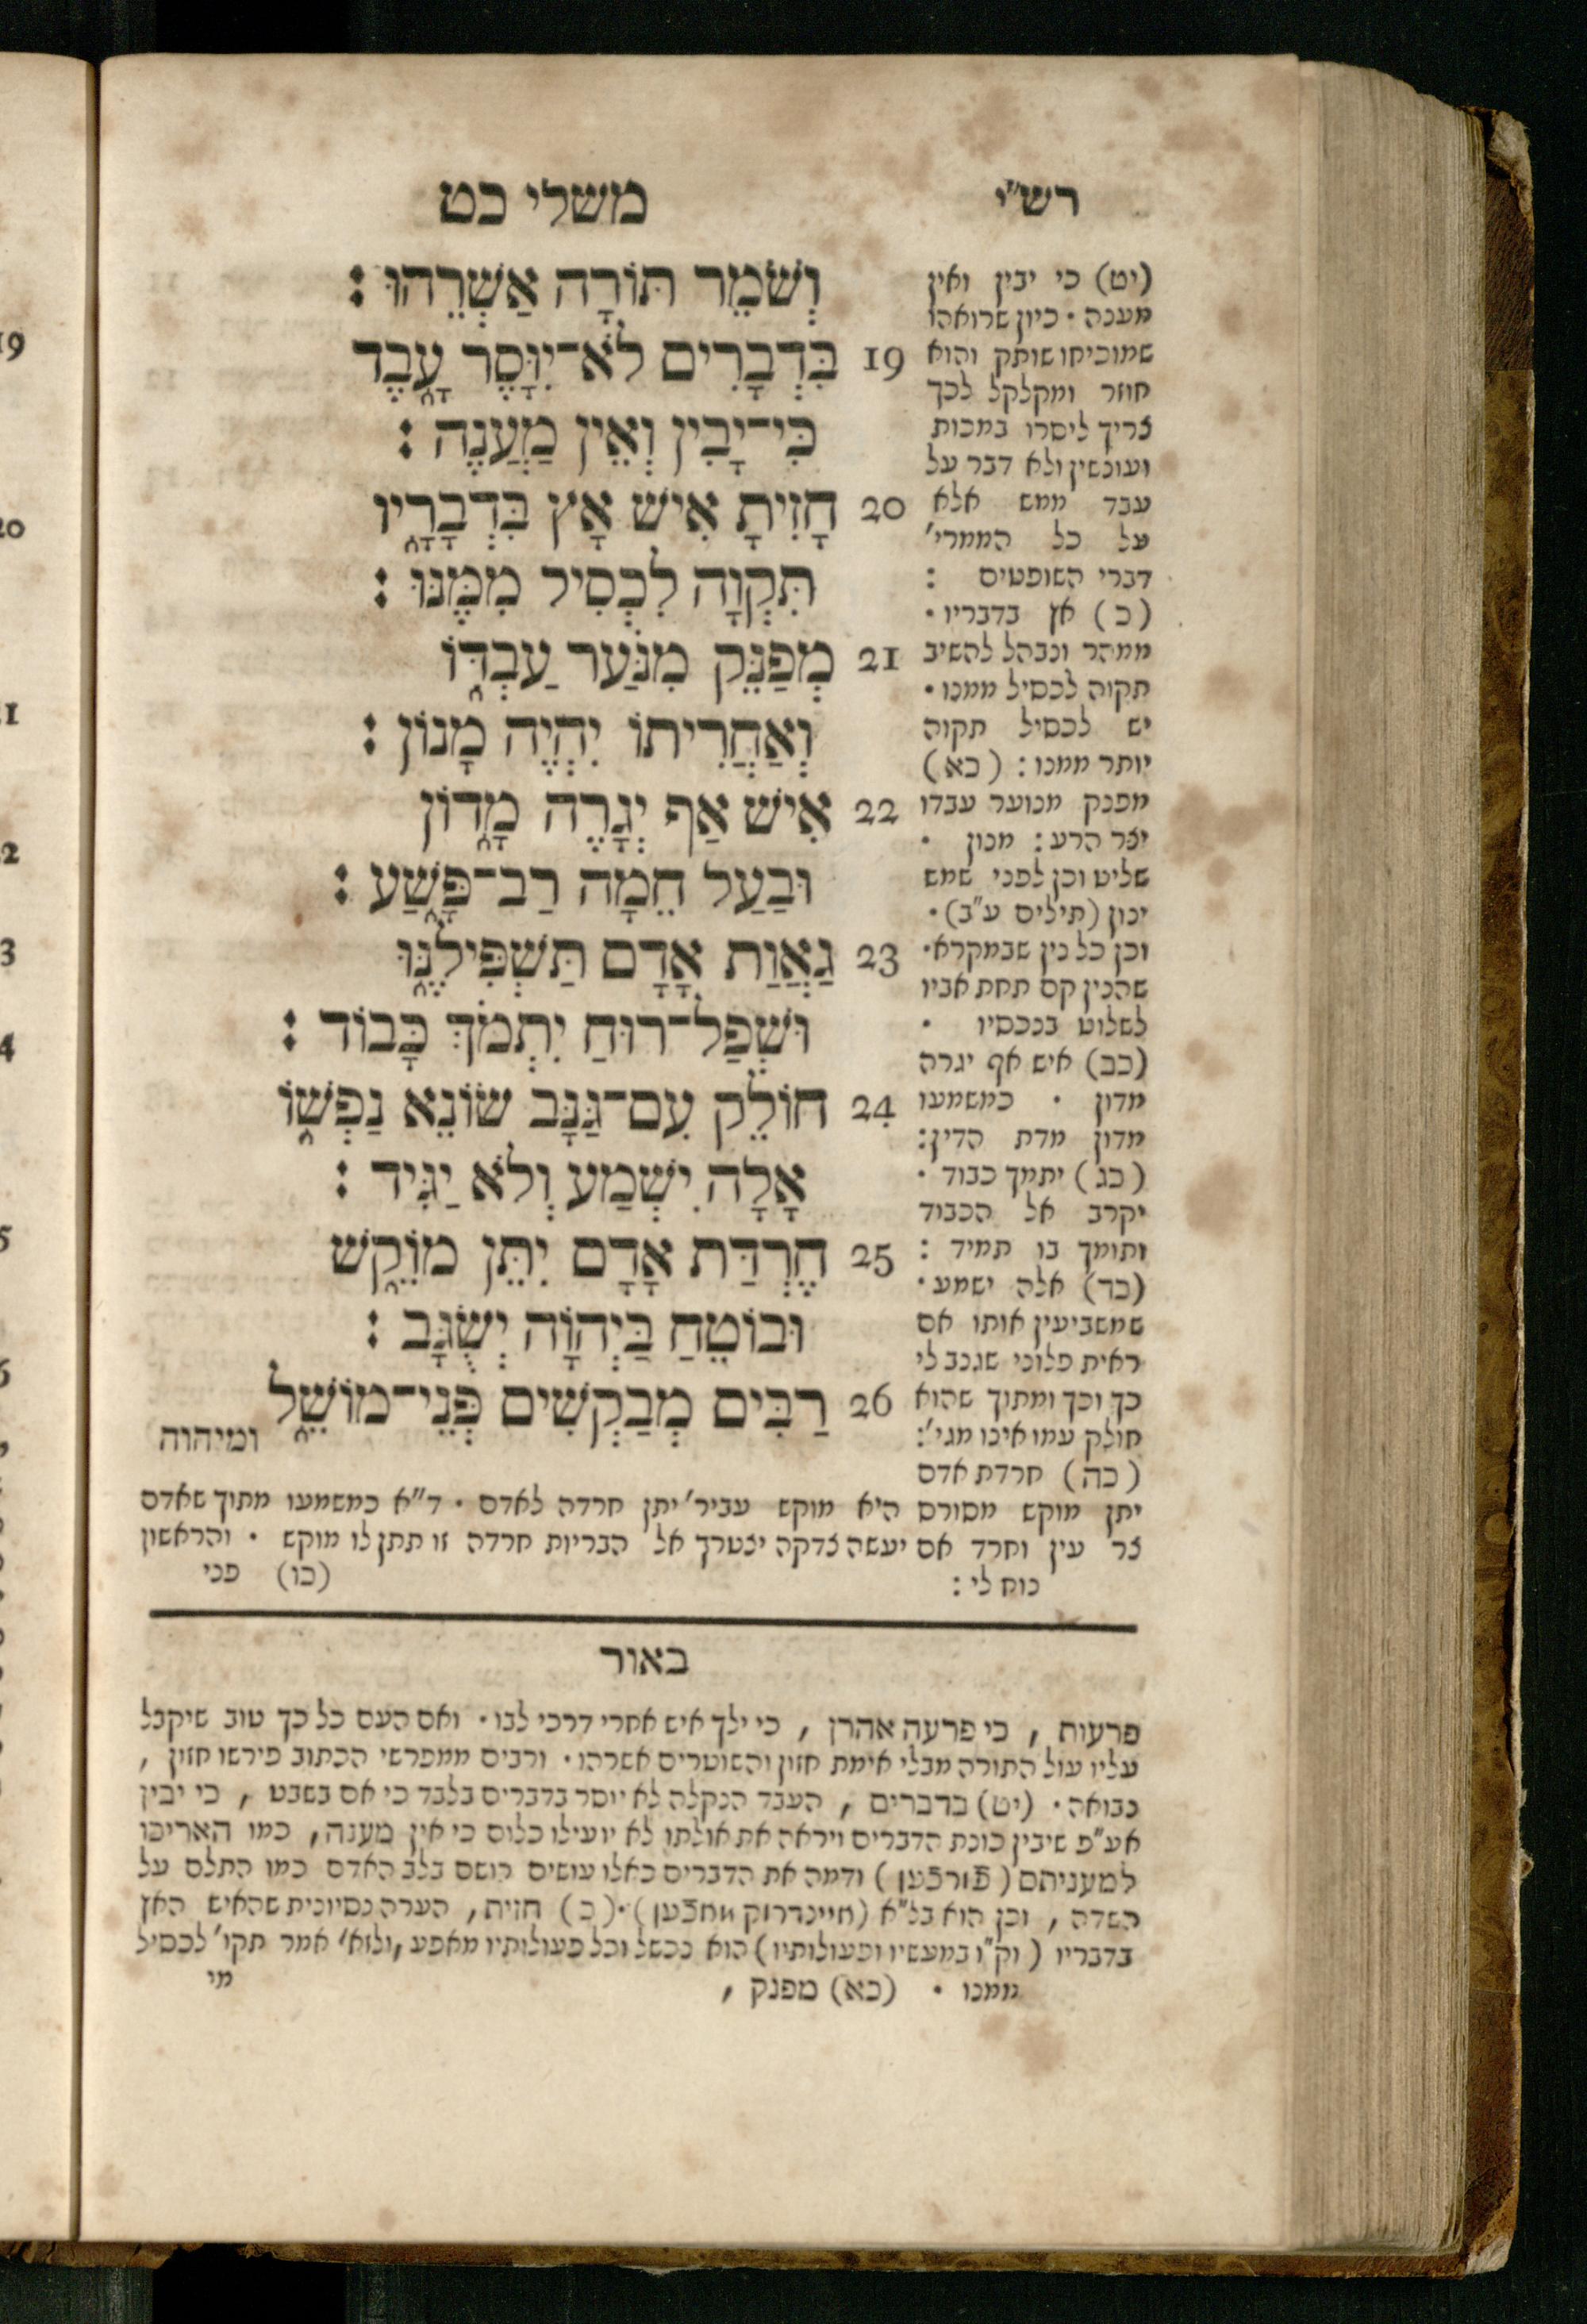 רש״י
משלי כט
(יט) כי יבין ואין
מענה · כיון שרואהו
שמוכיחו שותק והוא
חוזר ומקלקל לכך
צריך ליסרו במכות
ועונשין ולא דבר על
עבד ממש אלא
על כל הממרי'
דברי השופטים :
(כ) אץ בדבריו ·
ממהר ונבהל להשיב
תקוה לכסיל ממנו ·
יש לכסיל תקוה
יותר ממנו : (כא)
מפנק מנוער עבדו
יצר הרע : מנון ·
שליט וכן לפני שמש
ינון (תילים ע"ב) ·
וכן כל נין שבמקרא ·
שהנין קם תחת אביו
לשלוט בנכסיו ·
(כב) איש אף יגרה
מדון · כמשמעו
מדון מדת הדין :
(כג) יתמך כבוד ·
יקרב אל הכבוד
ותומך בו תמיד :
(כד) אלה ישמע ·
שמשביעין אותו אם
ראית פלוני שגנב לי
כך וכך ומתוך שהוא
חולק עמו אינו מגי' :
(כה) חרדת אדם
וְשֹׁמֵר תּוֹרָה אַשְׁרֵהוּ :
19 בִּדְבָרִים לֹא־יִוָּסֶר עָ֑בֶד
כִּי־יָבִין וְאֵין מַעֲנֶה :
20 חָזִיתָ אִישׁ אָץ בִּדְבָרָ֑יו
תִּקְוָה לִכְסִיל מִמֶּנּוּ :
21 מְפַנֵּק מִנֹּעַר עַבְדּ֑וֹ
וְאַחֲרִיתוֹ יִהְיֶה מָנוֹן :
22 אִישׁ אַף יְגָרֶה מָד֑וֹן
וּבַעַל חֵמָה רַב־פָּשַׁע :
23 גַּאֲוַת אָדָם תַּשְׁפִּילֶ֑נּוּ
וּשְׁפַל־רוּחַ יִתְמֹךְ כָּבוֹד :
24 חוֹלֵק עִם־גַּנָּב שׂוֹנֵא נַפְשׁ֑וֹ
אָלָה יִשְׁמַע וְלֹא יַגִּיד :
25 חֶרְדַּת אָדָם יִתֵּן מוֹקֵ֑שׁ
וּבוֹטֵחַ בַּיְהוָֹה יְשֻׂגָּב :
26 רַבִּים מְבַקְשִׁים פְּנֵי־מוֹשֵׁ֑ל
ומיהוה
יתן מוקש מסורס היא מוקש עביר' יתן חרדה לאדם · ד"א כמשמעו מתוך שאדם
צר עין וחרד אם יעשה צדקה יצטרך אל הבריות חרדה זו תתן לו מוקש · והראשון
נוח לי : (כו) פני
באור
פרעות , כי פרעה אהרן , כי ילך איש אחרי דרכי לבו · ואם העם כל כך טוב שיקבל
עליו עול התורה מבלי אימת חזון והשוטרים אשרהו · ורבים ממפרשי הכתוב פירשו חזון ,
נבואה · (יט) בדברים , העבד הנקלה לא יוסר בדברים בלבד כי אם בשבט , כי יבין
אע"פ שיבין כונת הדברים ויראה את אולתו לא יועילו כלום כי אין מענה, כמו האריכו
למעניתם (פֿורכֿען) ודמה את הדברים כאלו עושים רושם בלב האדם כמו התלם על
השדה , וכן הוא בל"א (איינדרוק מאכֿען) · (כ) חזית, הערה נסיונית שהאיש האץ
בדבריו (וק"ו במעשיו ופעולותיו) הוא נכשל וכל פעולותיו מאפע, ולזא' אמר תקו' לכסיל
ממנו · (כא) מפנק , מי